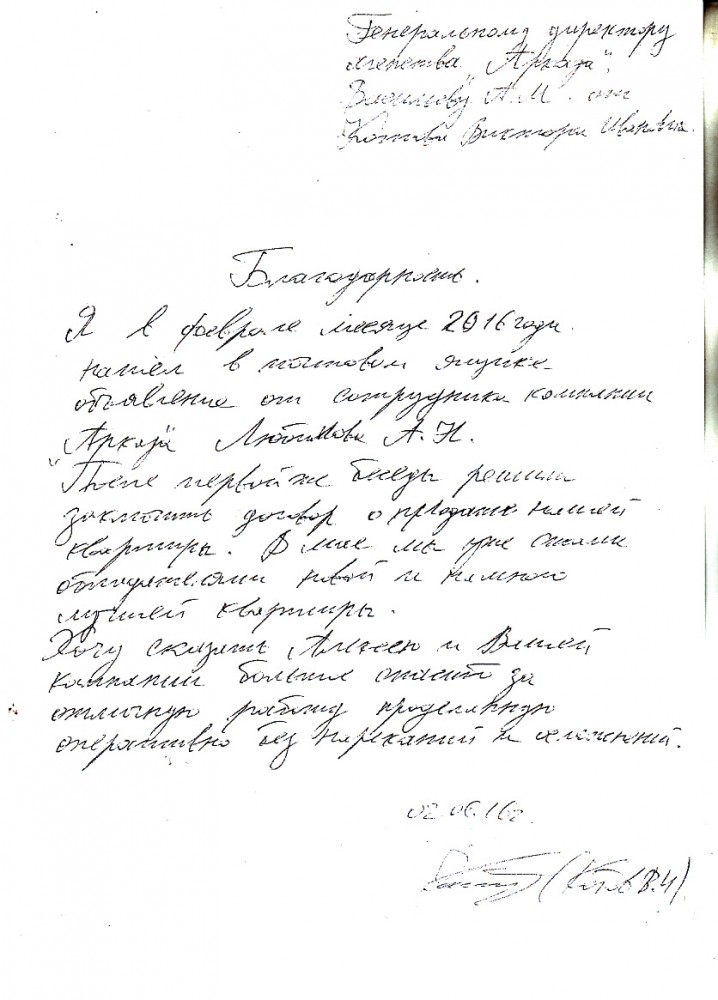 Генеральному директору
агентства "Аркада",
А.М. от
Котова Виктора Ивановича.
Благодарность.
Я в феврале месяце 2016 года
нашел в почтовом ящике
объявление от сотрудника компании
"Аркада" А.Н.
После первой же беседы решили
заключить договор о продаже нашей
квартиры. В мае мы уже стали
обладателями новой и намного
лучшей квартиры.
Хочу сказать Алексею и Вашей
компании большое спасибо за
отличную работу проделанную
оперативно без нареканий и осложнений.
02.06.16г.
(Котов В.И)